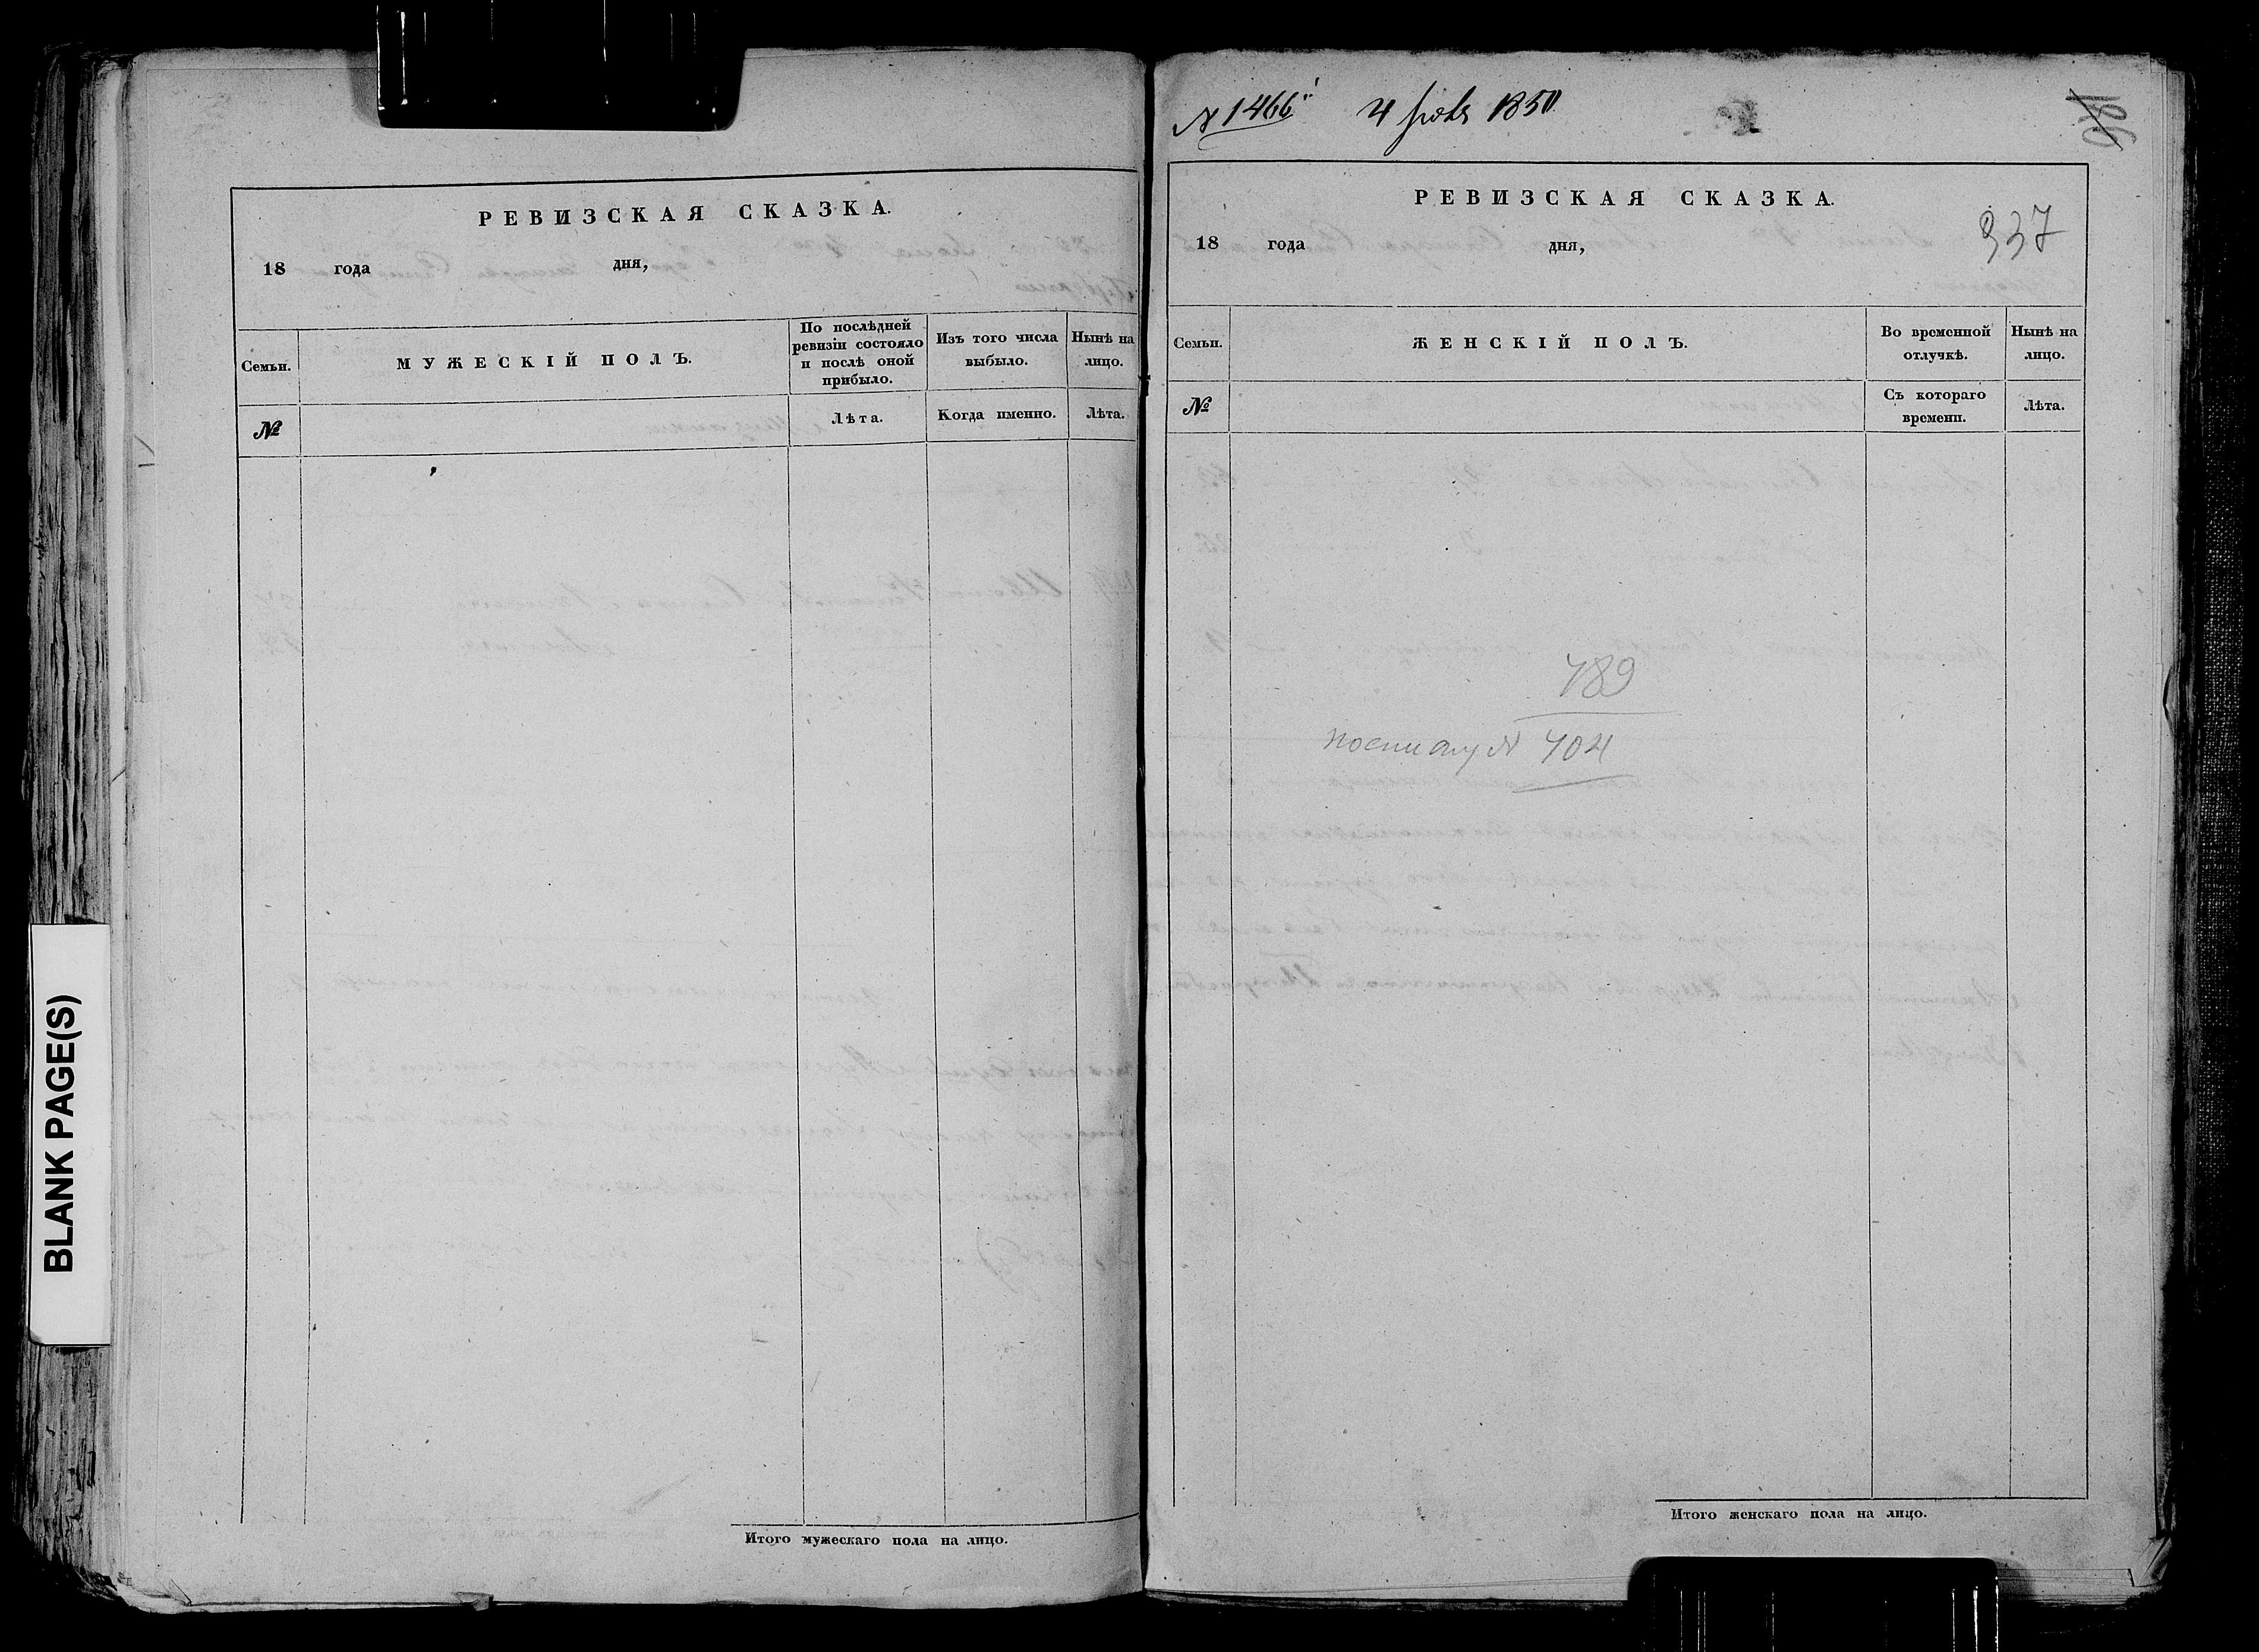 BLANK PAGE(S)
РЕВИЗСКАЯ СКАЗКА.
18 года дня,
Семьи.
МУЖЕСКІЙ ПОЛЪ.
По послѣдней
ревизіи состояло
и послѣ оной
прибыло.
Изъ того числа
выбыло.
Нынѣ на
лицо.
№
Лѣта.
Когда именно.
Лѣта.
Итого мужескаго пола на лицо.
№ 1466 4 1850
РЕВИЗСКАЯ СКАЗКА.
337
18 года дня,
Семьи.
ЖЕНСКІЙ ПОЛЪ.
Во временной
отлучкѣ.
Нынѣ на
лицо.
№
Съ котораго
времени.
Лѣта.
789
704
Итого женскаго пола на лицо.